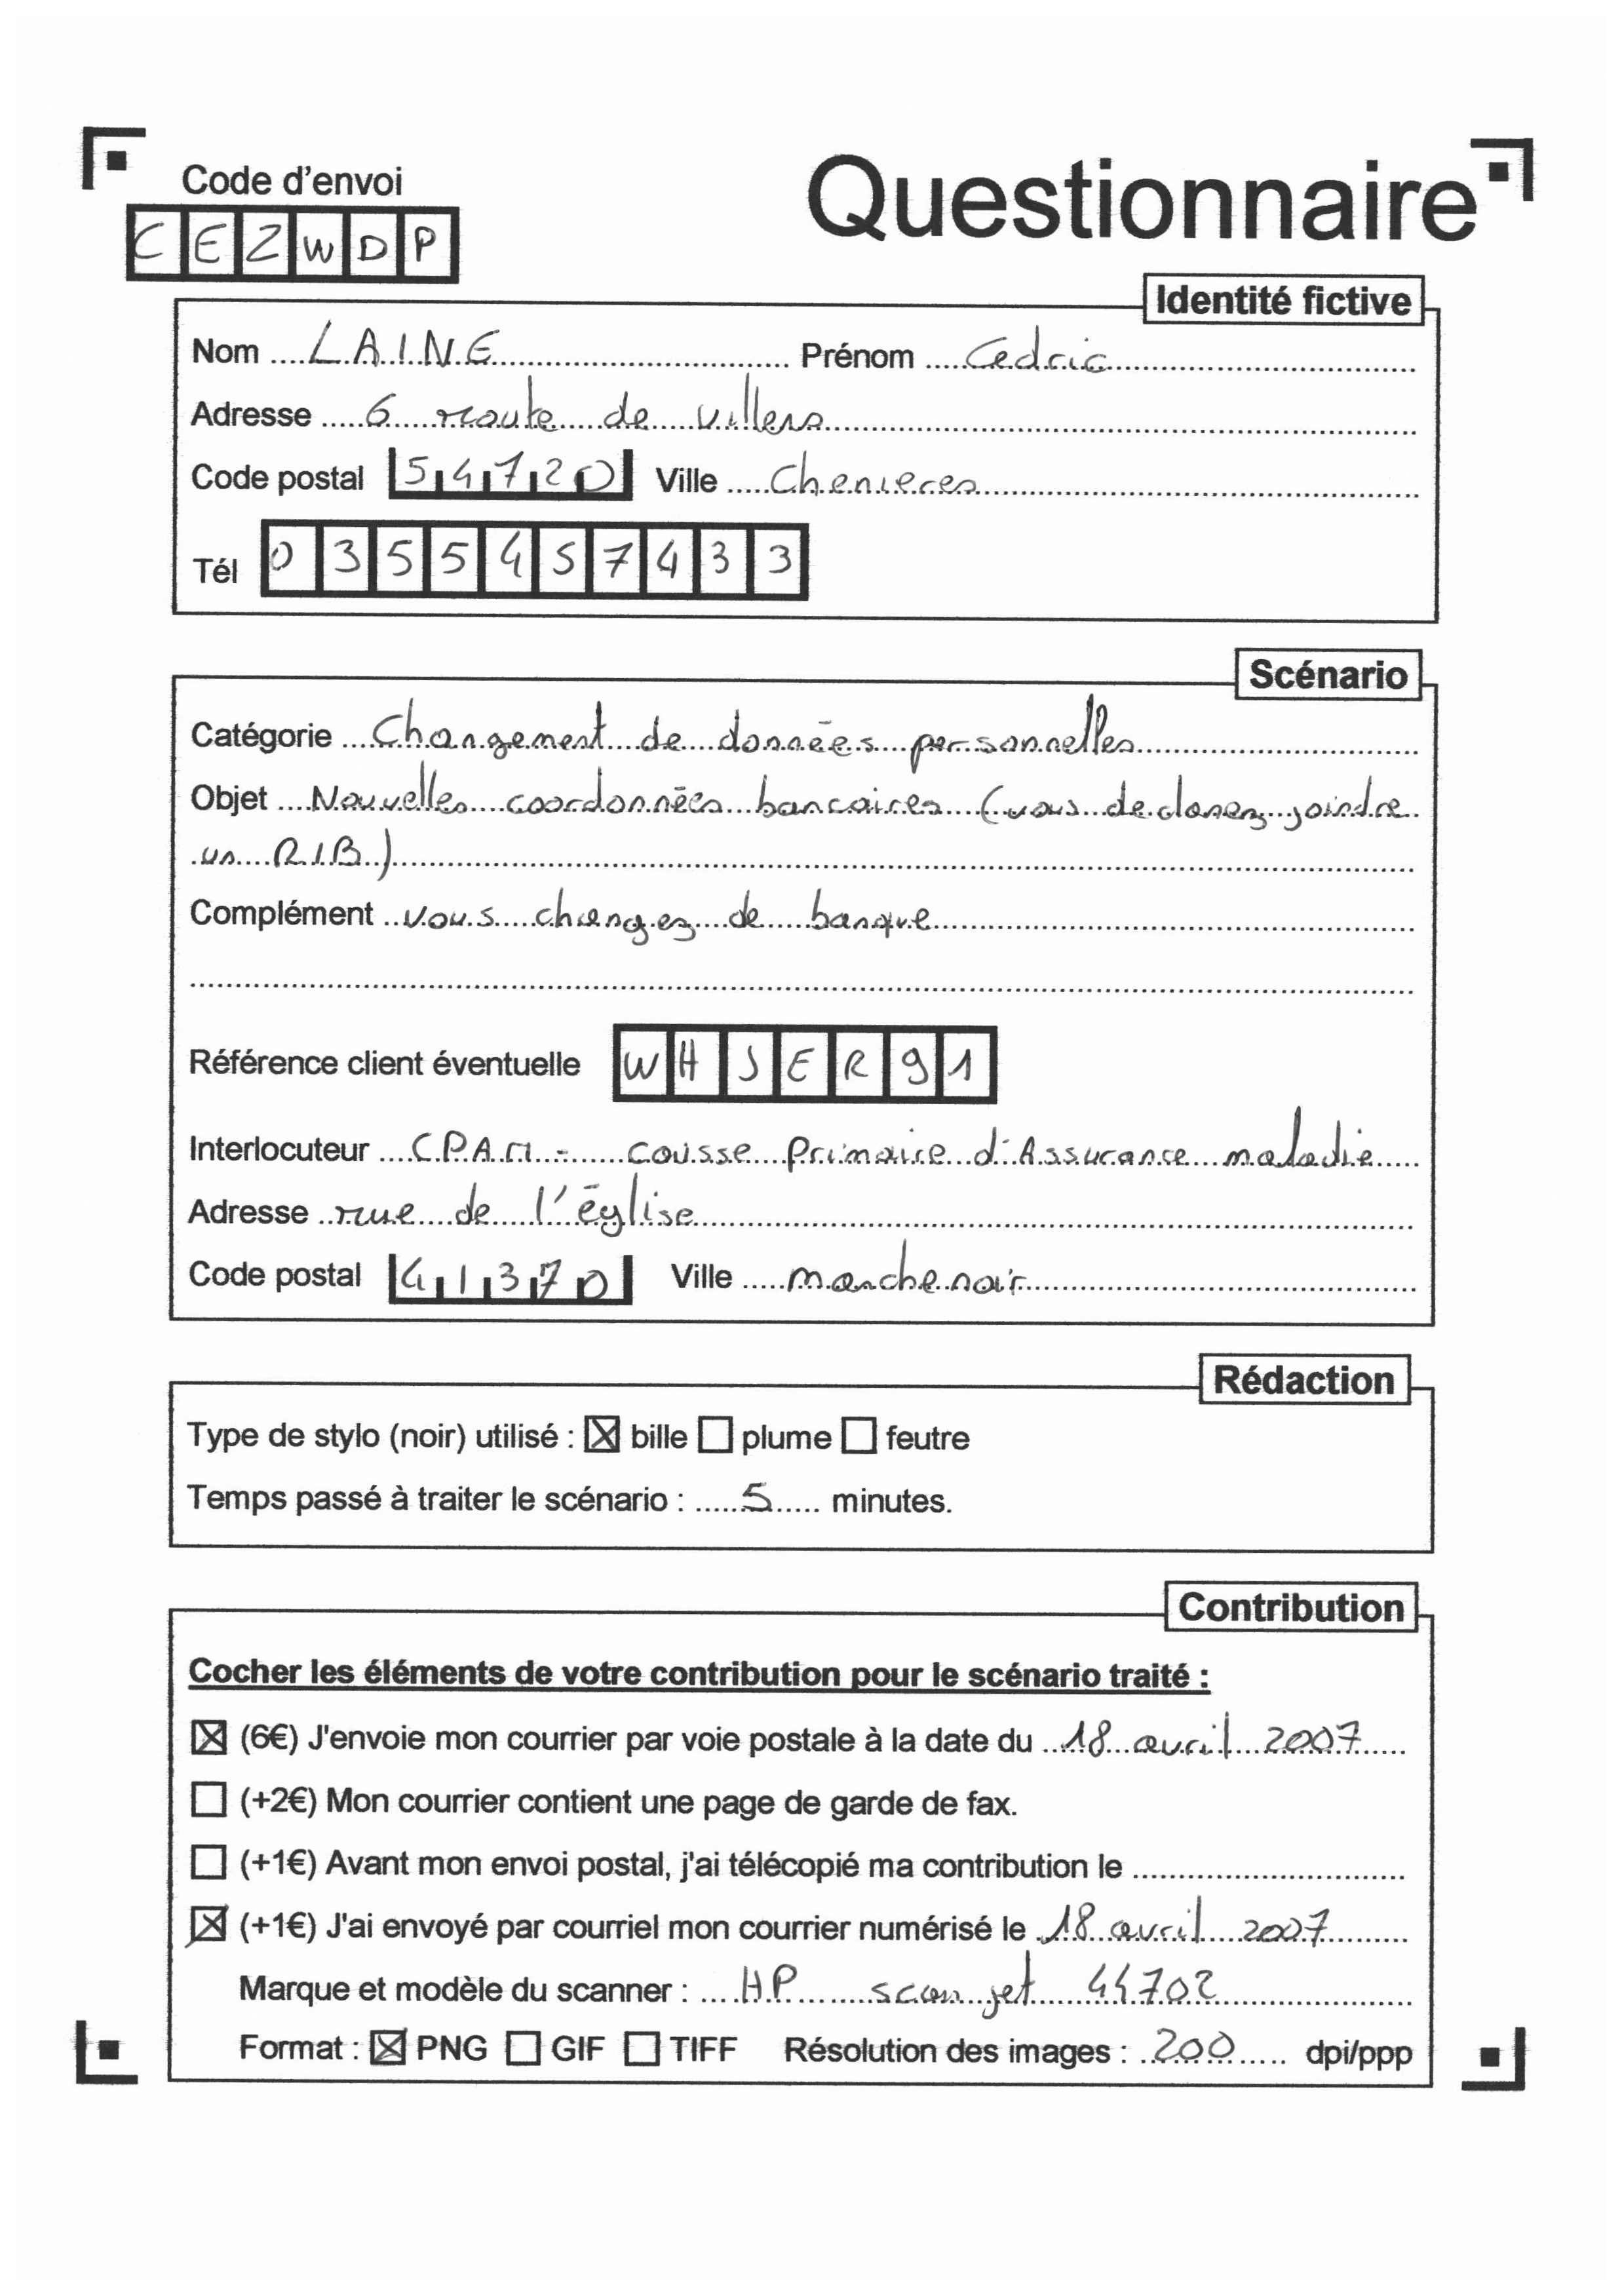 Code d'envoi
Questionnaire
CEZWDP
Identité fictive
Nom LAINE Prénom Cedric
Adresse 6 route de villers
Code postal 54720 Ville Chenieres
Tél 0355457433
Scénario
Catégorie Changement de données personnelles
Objet Nouvelles coordonnées bancaires (vous joindre
un RIB)
Complément vous changez de banque
Référence client éventuelle WHJER91
Interlocuteur CPAM - caisse Primaire d'Assurance maladie
Adresse rue de l'église
Code postal 41370 Ville marchenoir
Rédaction
Type de stylo (noir) utilisé : bille plume feutre
Temps passé à traiter le scénario : 5 minutes.
Contribution
Cocher les éléments de votre contribution pour le scénario traité :
(6€) J'envoie mon courrier par voie postale à la date du 18 avril 2007
(+2€) Mon courrier contient une page de garde de fax.
(+1€) Avant mon envoi postal, j'ai télécopié ma contribution le
(+1€) J'ai envoyé par courriel mon courrier numérisé le 18 avril 2007
Marque et modèle du scanner : HP scan jet
Format : PNG GIF TIFF Résolution des images : 200 dpi/ppp